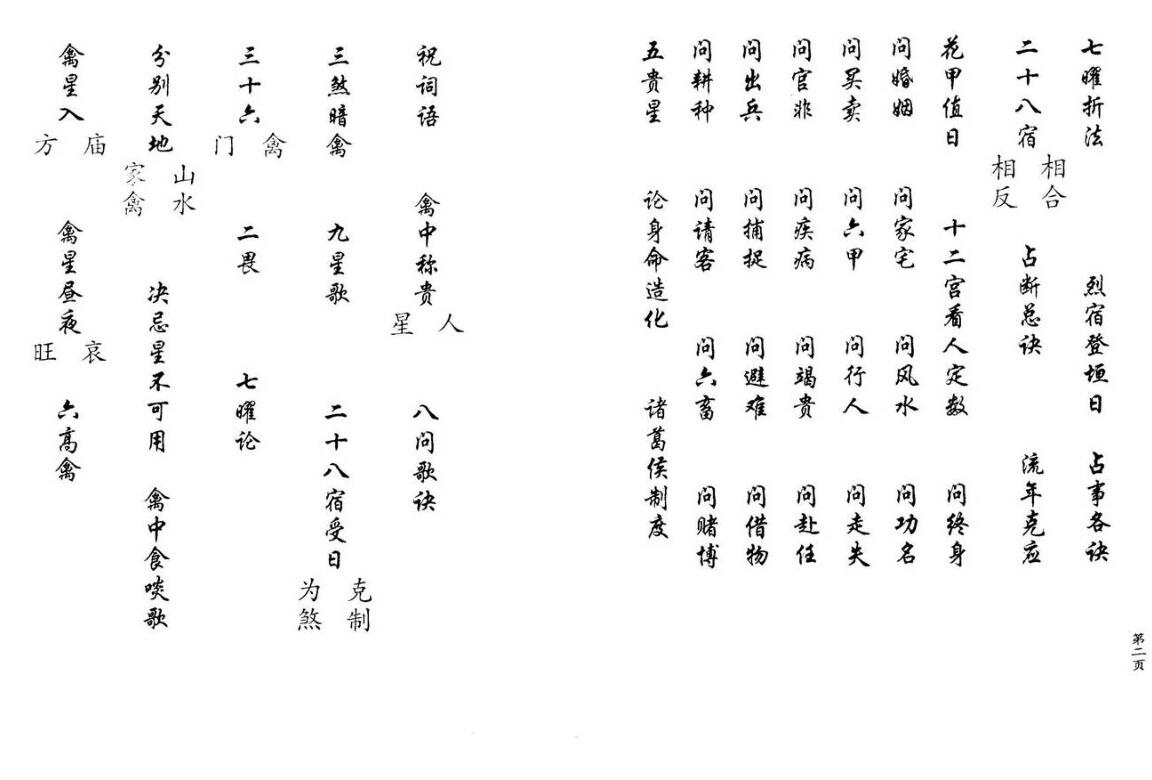 七曜折法 烈宿登垣日 占事各诀
二十八宿相合相反 占断总诀 流年克应
花甲值日 十二宫看人定数 问终身
问婚姻 问家宅 问风水 问功名
问买卖 问六甲 问行人 问走失
问官非 问疾病 问竭贵 问赴任
问出兵 问捕捉 问避难 问借物
问耕种 问请客 问六畜 问赌博
五贵星 论身命造化 诸葛侯制度
第二页
祝词语 禽中称贵人星 八问歌诀
三煞暗禽 九星歌 二十八宿受日克制为煞
三十六禽门 二畏 七曜论
分别天地山水家禽 决忌星不可用 禽中食啖歌
禽星入庙方 禽星昼夜哀旺 六高禽